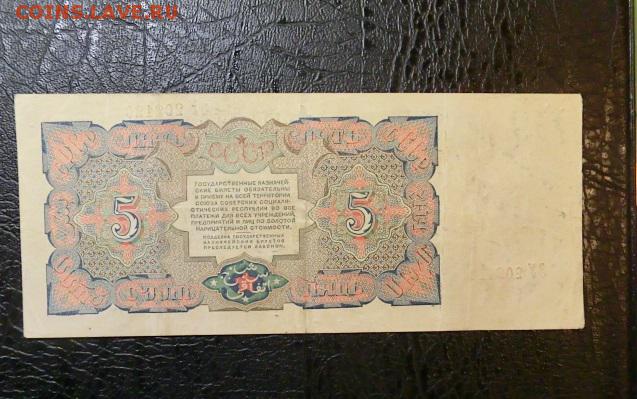 COINS.LAVE.RU
СССР
ГОСУДАРСТВЕННЫЕ КАЗНАЧЕЙ-
СКИЕ БИЛЕТЫ ОБЯЗАТЕЛЬНЫ
К ПРИЕМУ НА ВСЕЙ ТЕРРИТОРИИ
СОЮЗА СОВЕТСКИХ СОЦИАЛИ-
СТИЧЕСКИХ РЕСПУБЛИК ВО ВСЕ
ПЛАТЕЖИ ДЛЯ ВСЕХ УЧРЕЖДЕНИЙ,
ПРЕДПРИЯТИЙ И ЛИЦ ПО ЗОЛОТОЙ
НАРИЦАТЕЛЬНОЙ СТОИМОСТИ.
ПОДДЕЛКА ГОСУДАРСТВЕННЫХ
КАЗНАЧЕЙСКИХ БИЛЕТОВ
ПРЕСЛЕДУЕТСЯ ЗАКОНОМ.
5
5